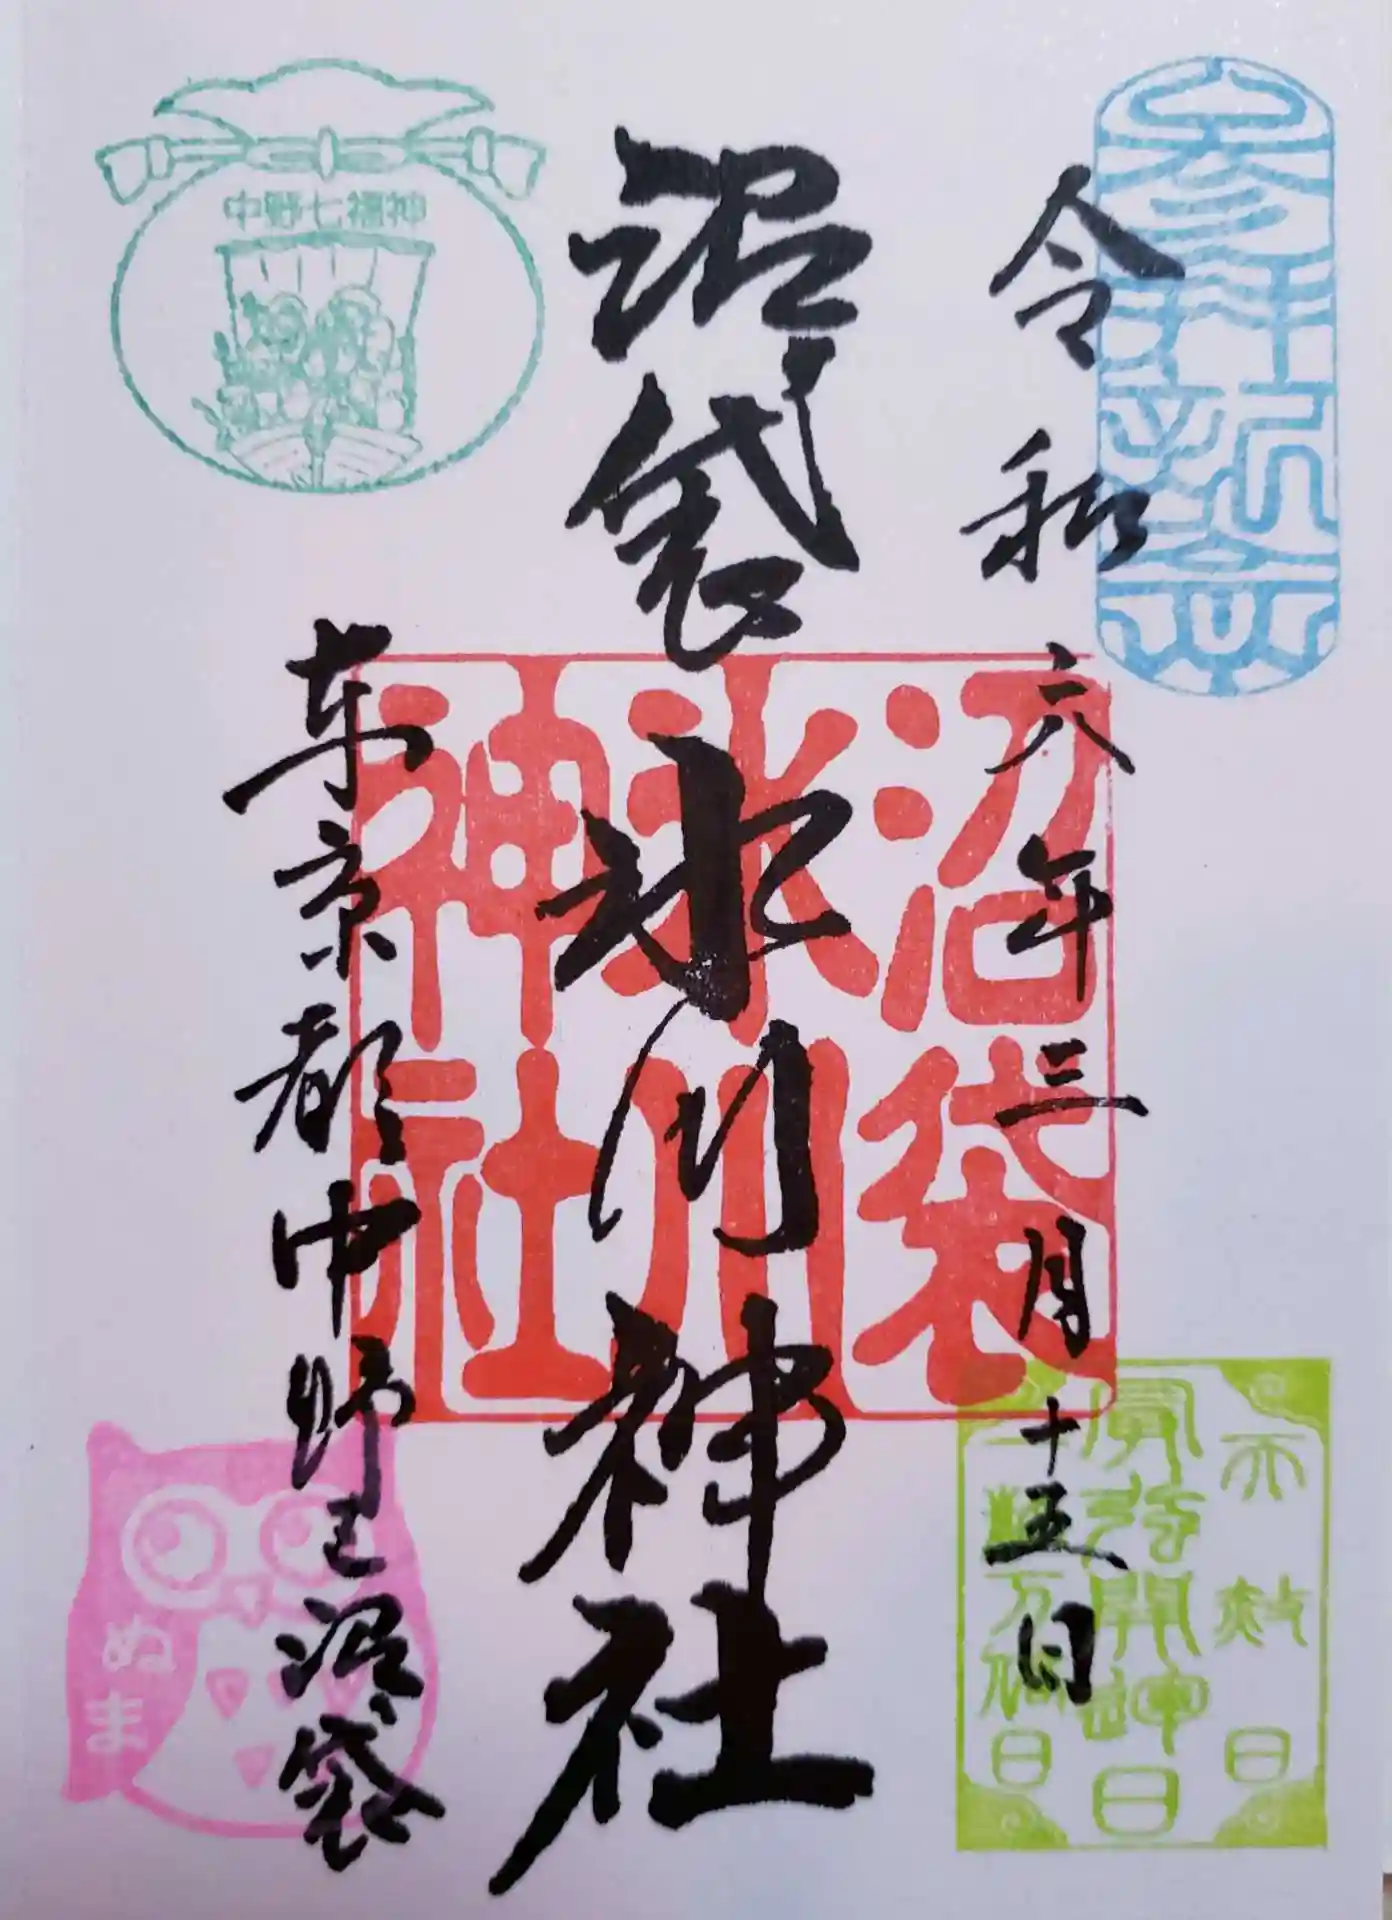 令和六年三月十五日
沼袋氷川神社
東京都中野区沼袋
中野七福神
沼袋
氷川
神社
天赦日
一粒万倍日
ぬま